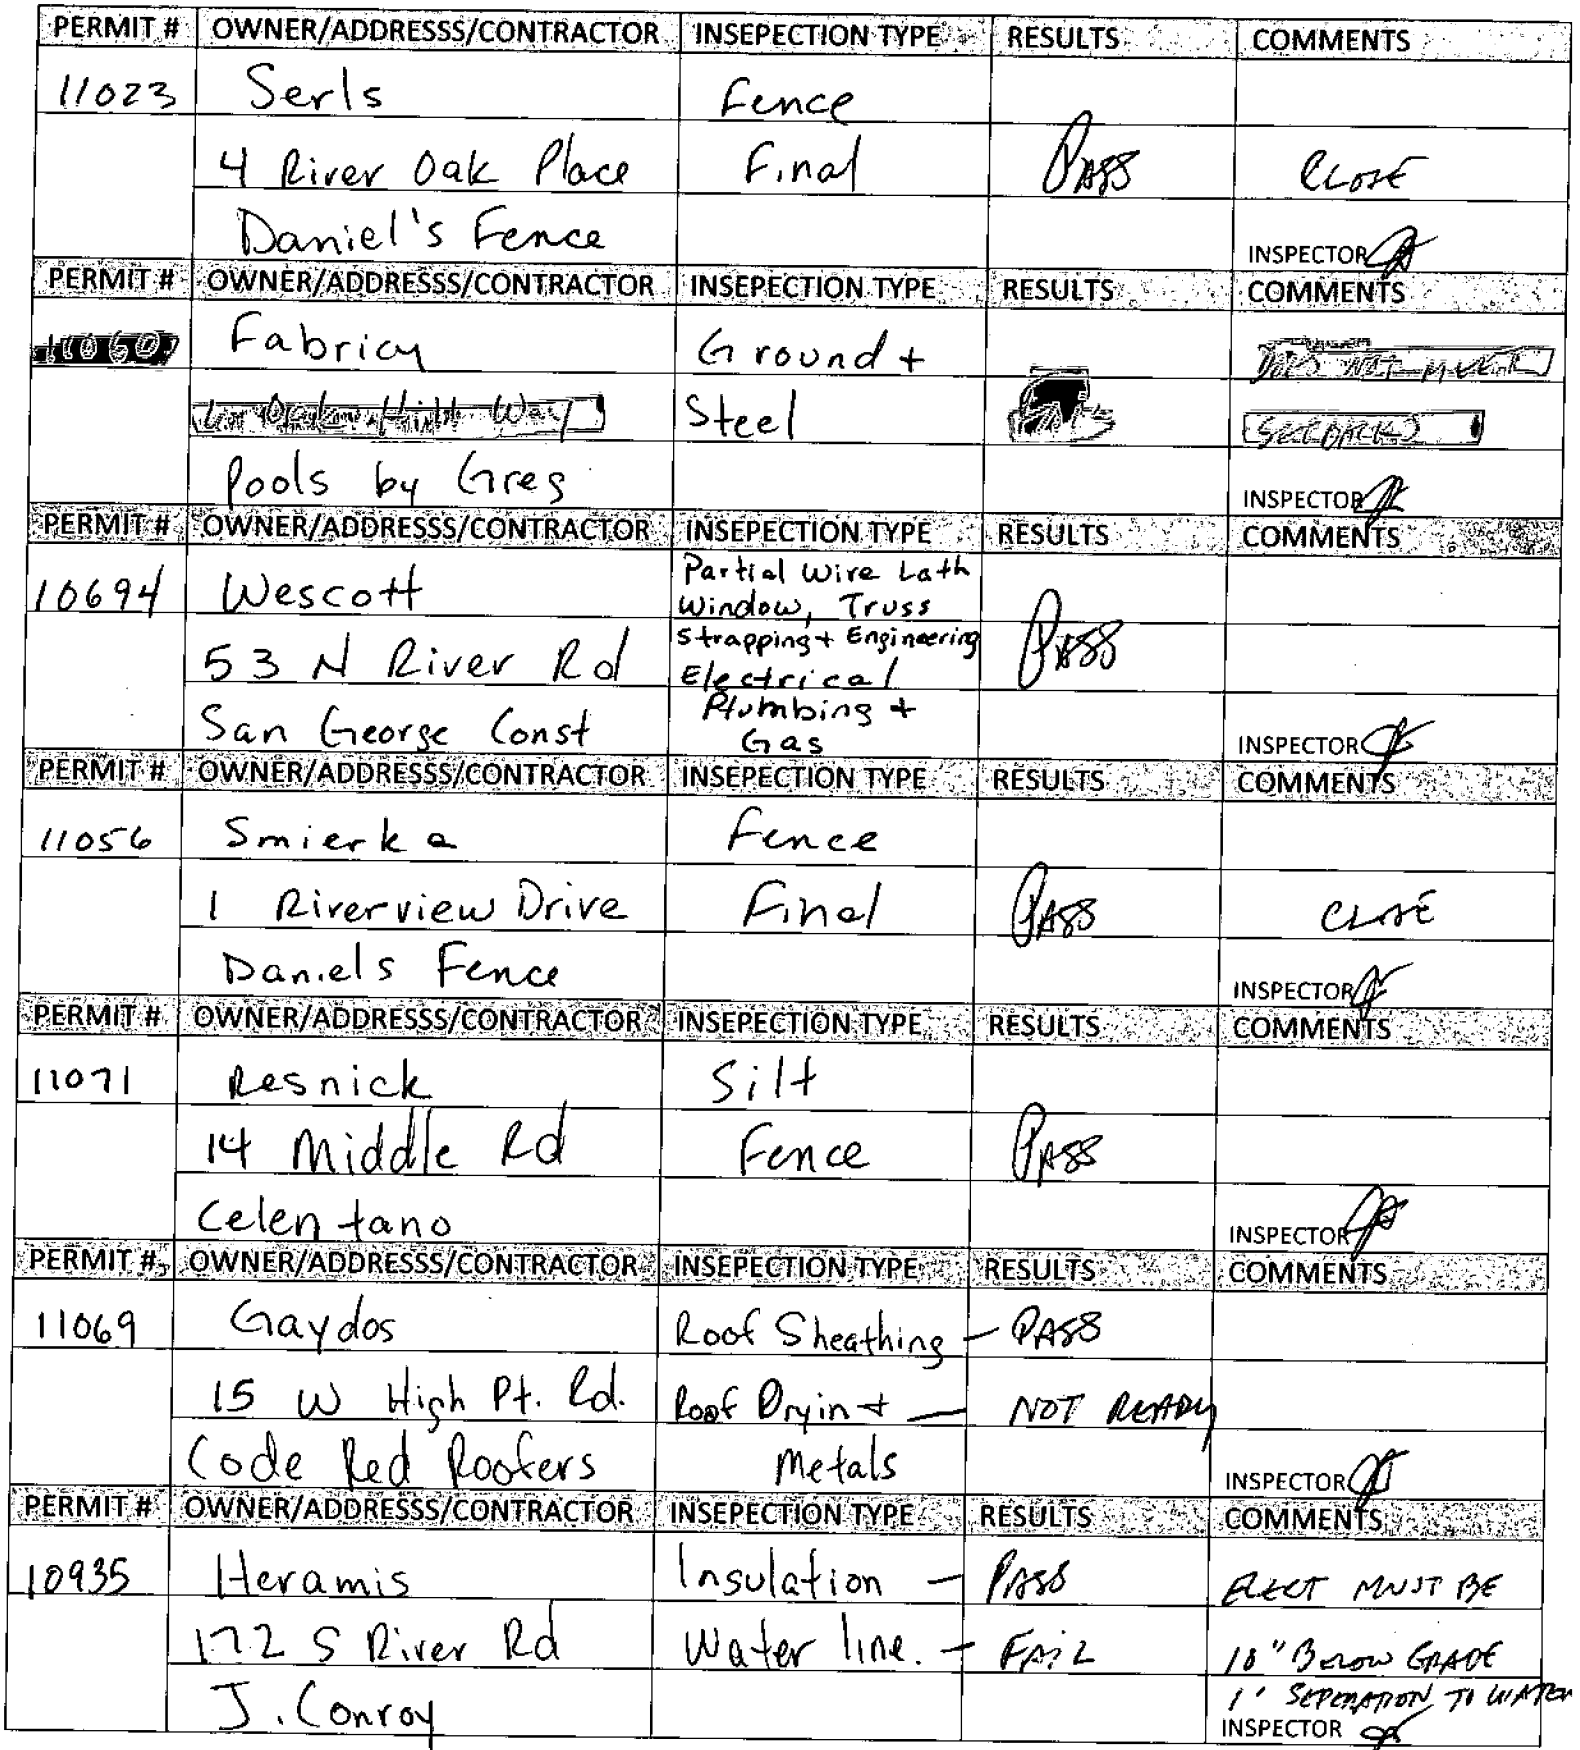 PERMIT # OWNER/ADDRESSS/CONTRACTOR INSEPECTION TYPE RESULTS COMMENTS
11023 Serls Fence
4 River Oak Place Final PASS CLOSE
Daniel's Fence INSPECTOR
PERMIT # OWNER/ADDRESSS/CONTRACTOR INSEPECTION TYPE RESULTS COMMENTS
Fabricy Ground +
Steel
Pools by Greg INSPECTOR
PERMIT # OWNER/ADDRESSS/CONTRACTOR INSEPECTION TYPE RESULTS COMMENTS
10694 Wescott Partial Wire Lath
Window, Truss
53 N River Rd Strapping + Engineering PASS
Electrical
San George Const Plumbing +
Gas INSPECTOR
PERMIT # OWNER/ADDRESSS/CONTRACTOR INSEPECTION TYPE RESULTS COMMENTS
11056 Smierka Fence
1 Riverview Drive Final PASS CLOSE
Daniels Fence INSPECTOR
PERMIT # OWNER/ADDRESSS/CONTRACTOR INSEPECTION TYPE RESULTS COMMENTS
11071 Resnick Silt
14 Middle Rd Fence PASS
Celentano INSPECTOR
PERMIT # OWNER/ADDRESSS/CONTRACTOR INSEPECTION TYPE RESULTS COMMENTS
11069 Gaydos Roof Sheathing – PASS
15 W High Pt. Rd. Roof Dryin + — NOT READY
Code Red Roofers Metals INSPECTOR
PERMIT # OWNER/ADDRESSS/CONTRACTOR INSEPECTION TYPE RESULTS COMMENTS
10935 Heramis Insulation – PASS ELECT MUST BE
172 S River Rd Water line. – FAIL 18" BELOW GRADE
J. Conroy 1' SEPERATION TO WATER
INSPECTOR